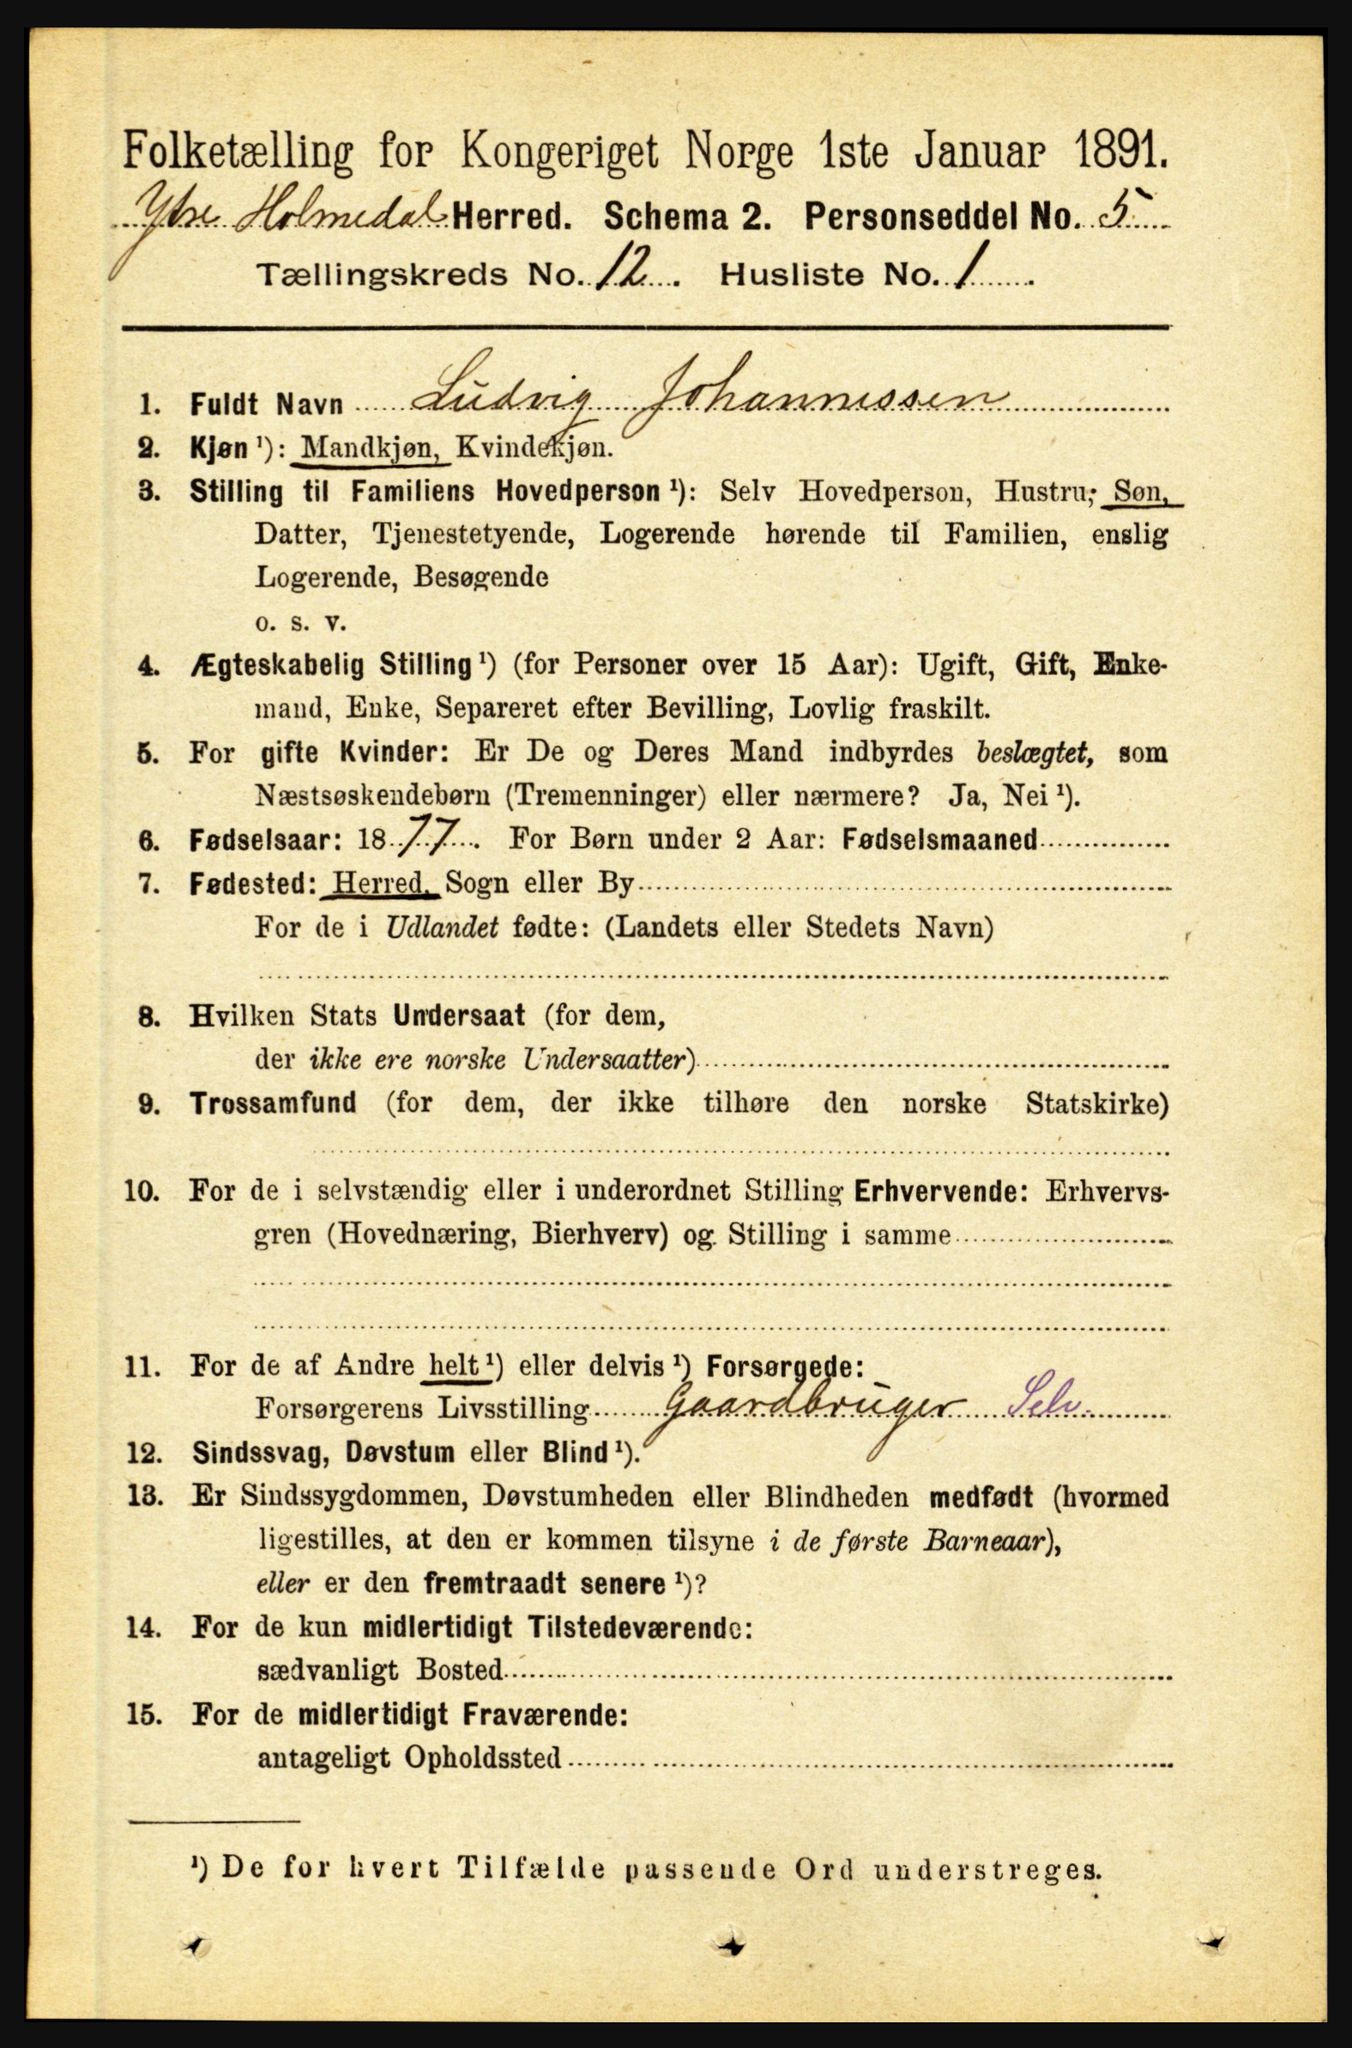 Folketælling for Kongeriget Norge 1ste Januar 1891.
Ytre Holmedal Herred. Schema 2. Personseddel No. 5
Tællingskreds No. 12. Husliste No. 1.
1. Fuldt Navn Ludvig Johannessen
2. Kjøn ¹): Mandkjøn, Kvindekjøn.
3. Stilling til Familiens Hovedperson ¹): Selv Hovedperson, Hustru, Søn,
Datter, Tjenestetyende, Logerende hørende til Familien, enslig
Logerende, Besøgende
o. s. v.
4. Ægteskabelig Stilling ¹) (for Personer over 15 Aar): Ugift, Gift, Enke-
mand, Enke, Separeret efter Bevilling, Lovlig fraskilt.
5. For gifte Kvinder: Er De og Deres Mand indbyrdes beslægtet, som
Næstsøskendebørn (Tremenninger) eller nærmere? Ja, Nei ¹).
6. Fødselsaar: 1877. For Børn under 2 Aar: Fødselsmaaned
7. Fødested: Herred, Sogn eller By
For de i Udlandet fødte: (Landets eller Stedets Navn)
8. Hvilken Stats Undersaat (for dem,
der ikke ere norske Undersaatter)
9. Trossamfund (for dem, der ikke tilhøre den norske Statskirke)
10. For de i selvstændig eller i underordnet Stilling Erhvervende: Erhvervs-
gren (Hovednæring, Bierhverv) og Stilling i samme
11. For de af Andre helt ¹) eller delvis ¹) Forsørgede:
Forsørgerens Livsstilling Gaardbruger Selv.
12. Sindssvag, Døvstum eller Blind ¹).
13. Er Sindssygdommen, Døvstumheden eller Blindheden medfødt (hvormed
ligestilles, at den er kommen tilsyne i de første Barneaar),
eller er den fremtraadt senere ¹)?
14. For de kun midlertidigt Tilstedeværende:
sædvanligt Bosted
15. For de midlertidigt Fraværende:
antageligt Opholdssted
¹) De for hvert Tilfælde passende Ord understreges.